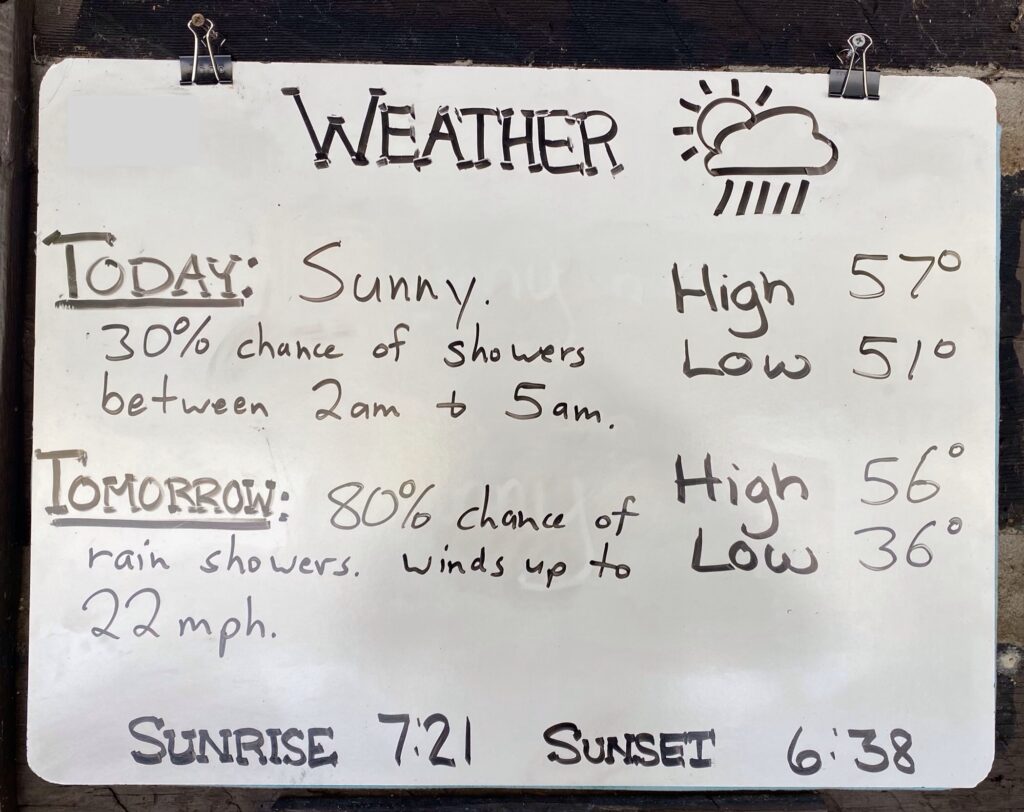 WEATHER
TODAY: Sunny. High 57°
30% chance of showers Low 51°
between 2am to 5am.
TOMORROW: 80% chance of High 56°
rain showers. winds up to Low 36°
22 mph.
SUNRISE 7:21 SUNSET 6:38